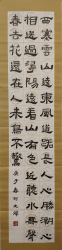 西塞雲山遠東風道路長人心勝潮水
相送過潯陽遠看山有色近聽水無聲
春去花還在人來鳥不驚